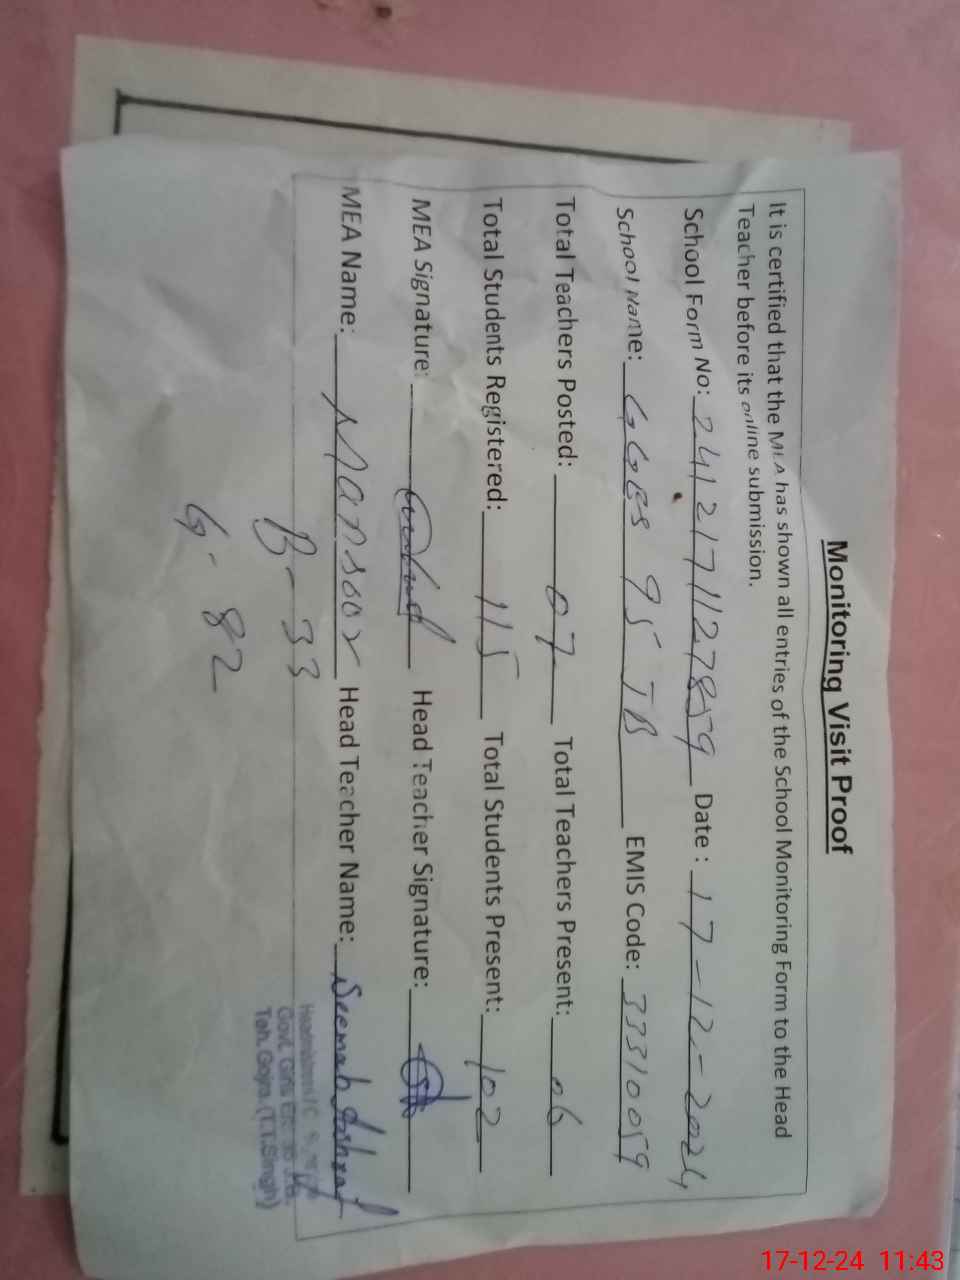 Monitoring Visit Proof
It is certified that the MEA has shown all entries of the School Monitoring Form to the Head
Teacher before its online submission.
School Form No: 2412171127859 Date : 17-12-2024
School Name: GGES 95 JB EMIS Code: 33310059
Total Teachers Posted: 07 Total Teachers Present: 06
Total Students Registered: 115 Total Students Present: 102
MEA Signature: Head Teacher Signature:
MEA Name: Mansoor Head Teacher Name: Seemab Ashraf
B- 33
G- 82
Govt. Girls
Teh. Gojra. (T.T.Singh)
17-12-24 11:43